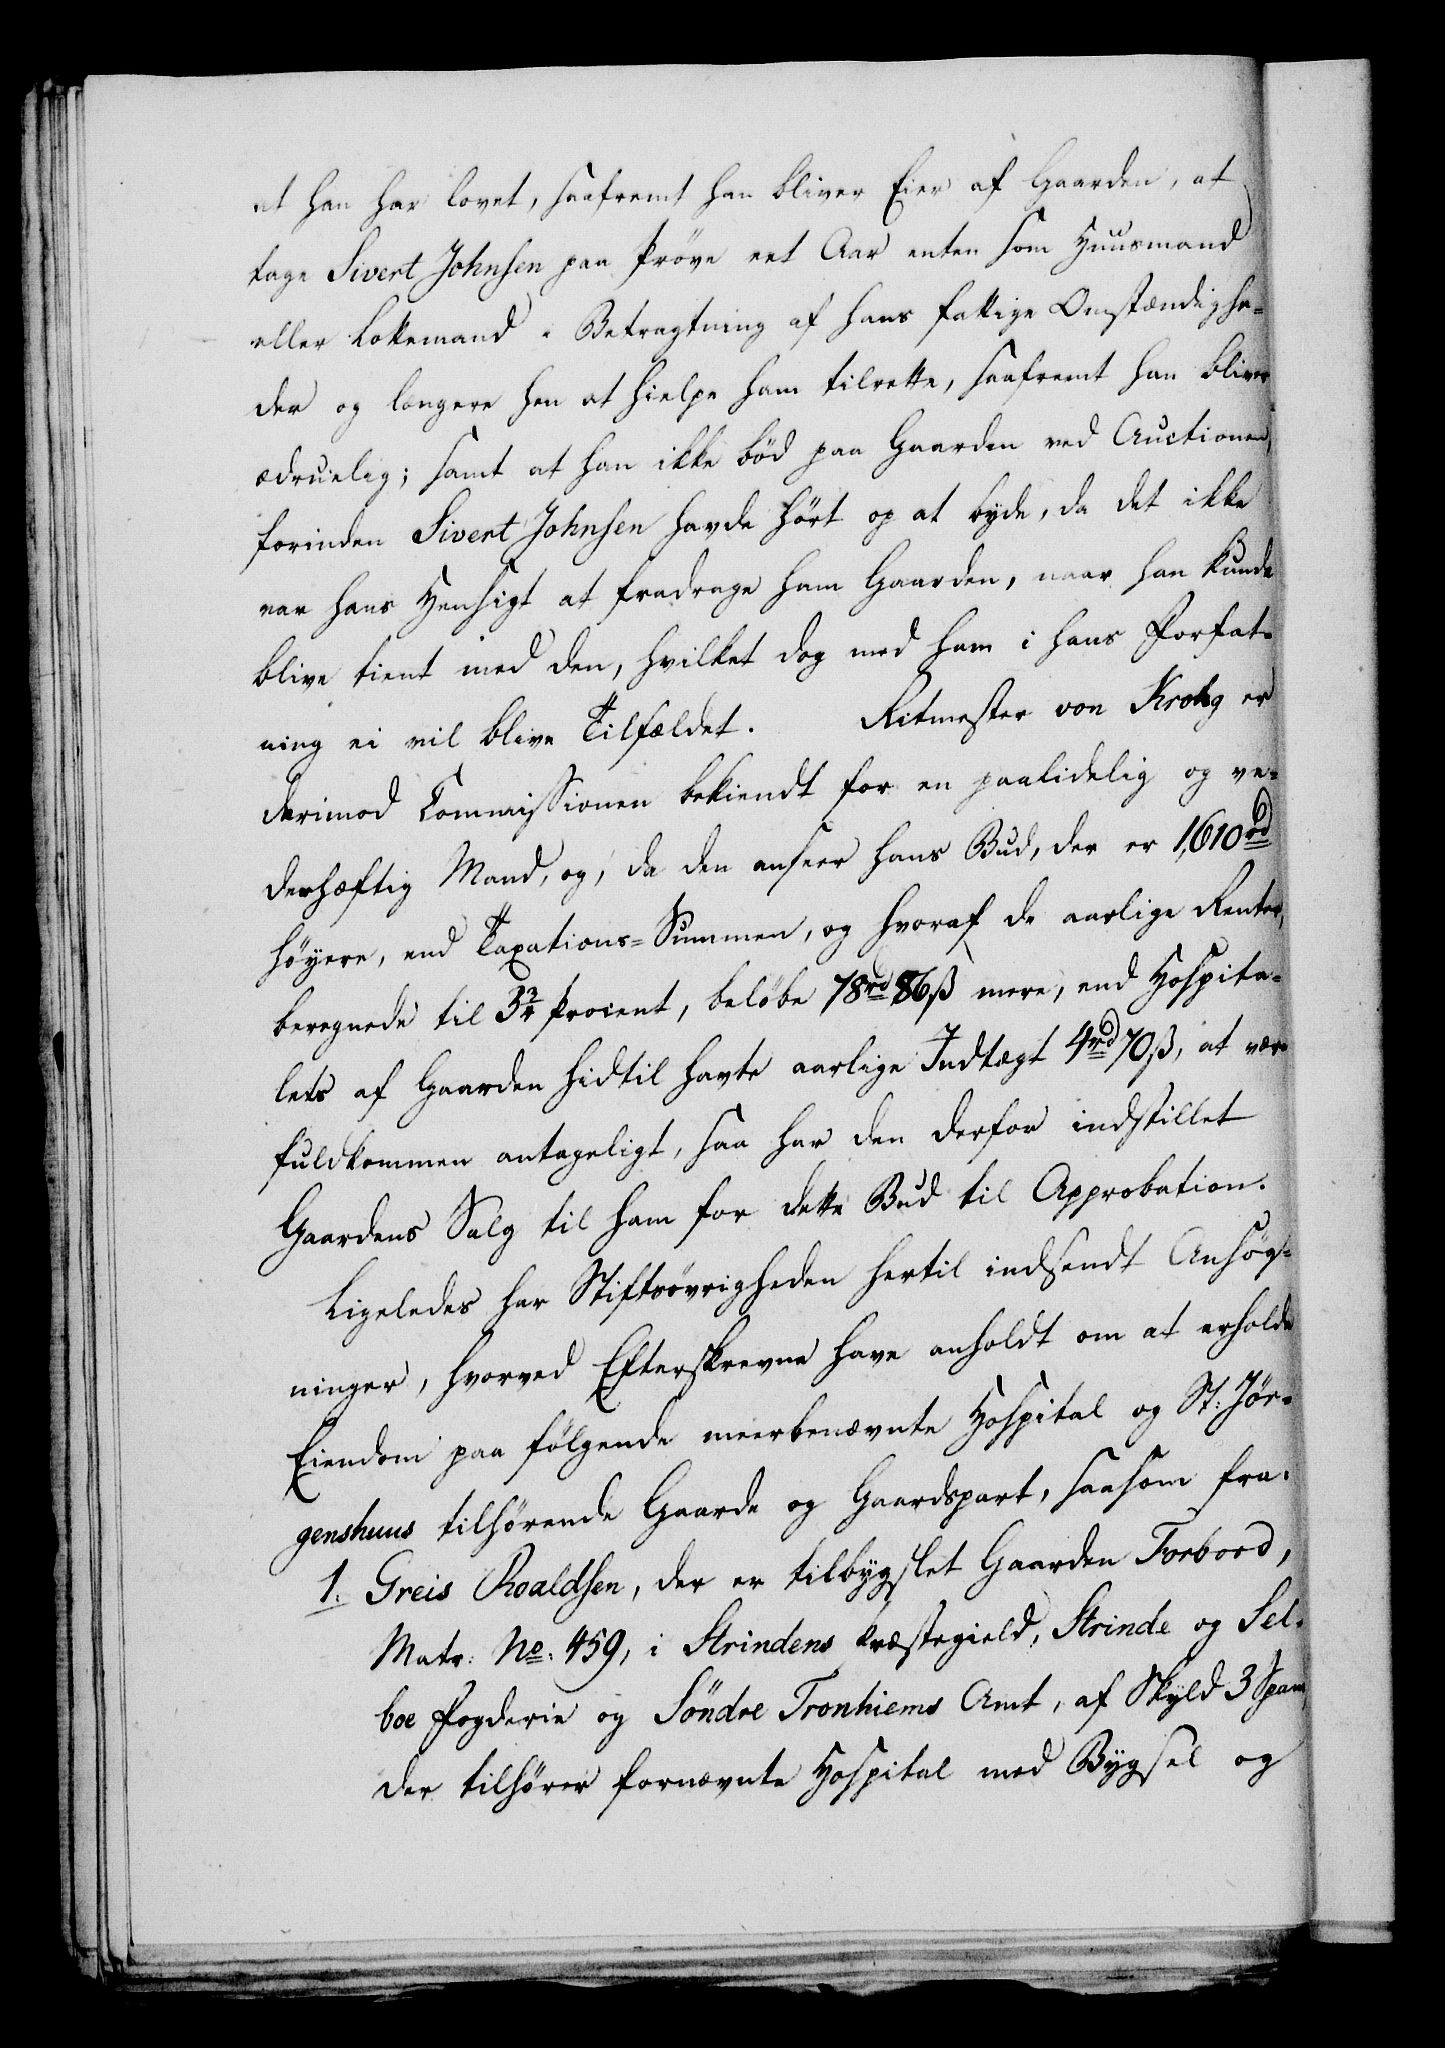 at han har lovet, saafremt han bliver Eier af Gaarden, at
tage Sivert Johnsen paa Prøve eet Aar enten som Huusmand
eller Lokemand i Betragtning af hans fattige Omstændighe-
der og længere hen at hielpe ham tilrette, saafremt han bliver
ædruelig; samt at han ikke bød paa Gaarden ved Auctionen,
forinden Sivert Johnsen havde hørt op at byde, da det ikke
var hans Hensigt at fradrage ham Gaarden, naar han kunde
blive tient med den, hvilket dog med ham i hans Forfat-
ning ei vil blive Tilfældet. Ritmester von Krohg er
derimod Commissionen bekiendt for en paalidelig og ve-
derhæftig Mand, og, da den anseer hans Bud, der er 1,610 rd
høyere, end Taxations-Summen, og hvoraf de aarlige Renter,
beregnede til 3¾ Procent, beløbe 78 rd 86 ß mere, end Hospita-
lets af Gaarden hidtil havte aarlige Indtægt 4 rd 70 ß, at være
fuldkommen antageligt, saa har den derfor indstillet
Gaardens Salg til ham for dette Bud til Approbation.
Ligeledes har Stiftsøvrigheden hertil indsendt Ansøg-
ninger, hvorved Efterskrevne have anholdt om at erholde
Eiendom paa følgende meerbenævnte Hospital og St: Jør-
genshuus tilhørende Gaarde og Gaardspart, saasom fra.
1. Greis Roaldsen, der er tilbygslet Gaarden Forbord,
Matr: No: 459, i Strindens Præstegield, Strinde og Sel-
boe Fogderie og Søndre Tronhiems Amt, af Skyld 3 Spand,
der tilhører fornævnte Hospital med Bygsel og